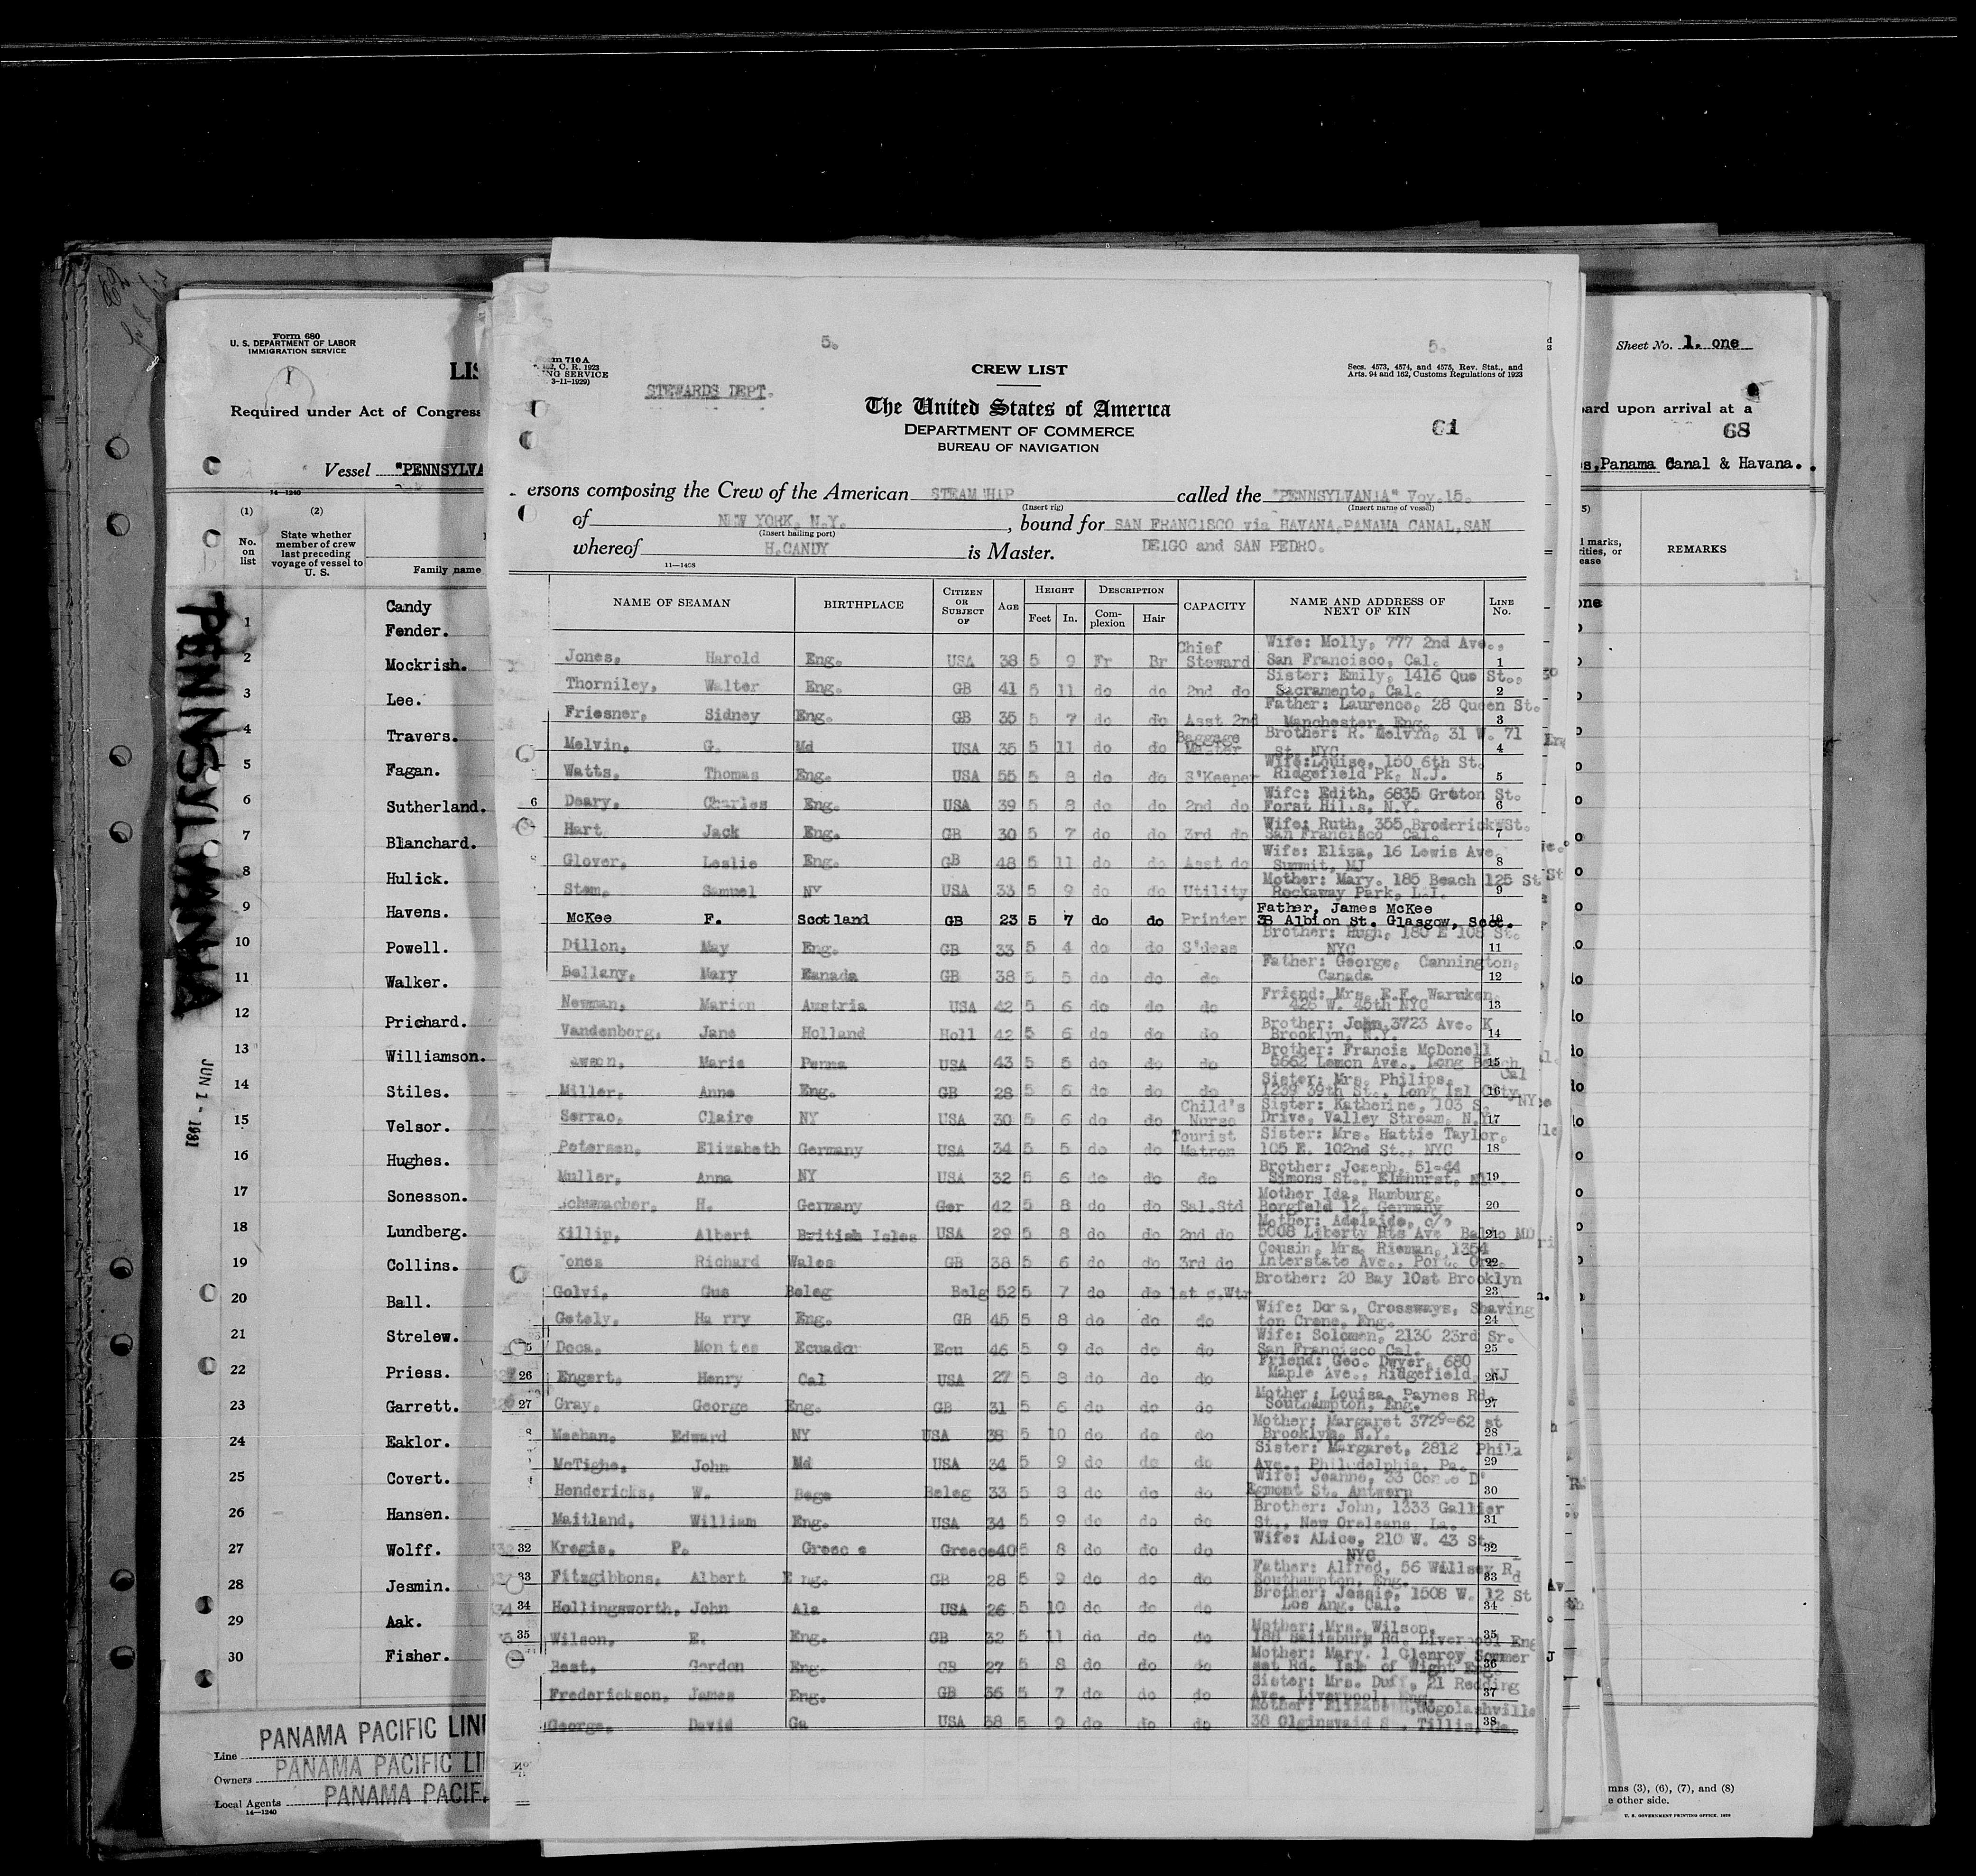 Form 680
U. S. DEPARTMENT OF LABOR
IMMIGRATION SERVICE
LIS
Required under Act of Congress
Vessel "PENNSYLVA
14—1240
(1) (2)
No. on list
State whether member of crew last preceding voyage of vessel to U. S.
Family name
Candy
1 Fender.
2 Mockrish.
3 Lee.
4 Travers.
5 Fagan.
6 Sutherland.
7 Blanchard.
8 Hulick.
9 Havens.
10 Powell.
11 Walker.
12 Prichard.
13 Williamson.
14 Stiles.
15 Velsor.
16 Hughes.
17 Sonesson.
18 Lundberg.
19 Collins.
20 Ball.
21 Strelew.
22 Priess.
23 Garrett.
24 Eaklor.
25 Covert.
26 Hansen.
27 Wolff.
28 Jesmin.
29 Aak.
30 Fisher.
PENNSYLVANIA
JUN 1 - 1931
Line PANAMA PACIFIC LIN
Owners PANAMA PACIFIC LI
Local Agents PANAMA PACIF
14—1240
5. 5.
orm 710 A
C. R. 1923
NG SERVICE
3-11-1929)
STEWARDS DEPT.
CREW LIST
Secs. 4573, 4574, and 4575, Rev. Stat., and
Arts. 94 and 162, Customs Regulations of 1923
The United States of America
DEPARTMENT OF COMMERCE
BUREAU OF NAVIGATION
61
ersons composing the Crew of the American STEAM HIP called the "PENNSYLVANIA" Voy.15.
(Insert rig) (Insert name of vessel)
of NEW YORK, N.Y. , bound for SAN FRANCISCO via HAVANA,PANAMA CANAL,SAN
(Insert hailing port)
whereof H.CANDY is Master. DEIGO and SAN PEDRO.
11—1498
NAME OF SEAMAN BIRTHPLACE CITIZEN OR SUBJECT OF AGE HEIGHT Feet In. DESCRIPTION Complexion Hair CAPACITY NAME AND ADDRESS OF NEXT OF KIN LINE No.
Jones, Harold Eng. USA 38 5 9 Fr Br Chief Steward Wife: Molly, 777 2nd Ave., San Francisco, Cal. 1
Thorniley, Walter Eng. GB 41 5 11 do do 2nd do Sister: Emily, 1416 Que St., Sacramento, Cal. 2
Friesner, Sidney Eng. GB 35 5 7 do do Asst 2nd Father: Laurence, 28 Queen St. Manchester, Eng. 3
Melvin, G. Md USA 35 5 11 do do Baggage Master Brother: R. Melvyn, 31 W. 71 St. NYC 4
Watts, Thomas Eng. USA 55 5 8 do do S'Keeper Wife:Louise, 150 6th St. Ridgefield Pk, N.J. 5
6 Deary, Charles Eng. USA 39 5 8 do do 2nd do Wife: Edith, 6835 Groton St. Forst Hills, N.Y. 6
Hart Jack Eng. GB 30 5 7 do do 3rd do Wife: Ruth, 355 Broderick St. San Francisco Cal. 7
Glover, Leslie Eng. GB 48 5 11 do do Asst do Wife: Eliza, 16 Lewis Ave. Summit, MJ 8
Stem, Samuel NY USA 33 5 9 do do Utility Mother: Mary. 185 Beach 125 St Rockaway Park, L.I. 9
McKee F. Scotland GB 23 5 7 do do Printer Father, James McKee 38 Albion St. Glasgow, Scot. 10
Dillon, May Eng. GB 33 5 4 do do S'dess Brother: Hugh, 180 E 108 St. NYC 11
Bellany, Mary Eanada GB 38 5 5 do do do Father: George, Cannington, Canada 12
Newman, Marion Austria USA 42 5 6 do do do Friend: Mrs. E.F. Waruken 426 W. 45th NYC 13
Vandenborg, Jane Holland Holl 42 5 6 do do do Brother: John,3723 Ave. K Brooklyn, N.Y. 14
awson, Marie Penna USA 43 5 5 do do do Brother: Francis McDonell 5662 Lemon Ave., Long Beach Cal 15
Miller, Anne Eng. GB 28 5 6 do do do Sister: Mrs. Philips, 1239 39th St., Long Isl City NY 16
Serrao, Claire NY USA 30 5 6 do do Child's Nurse Sister: Katherine, 103 S. Drive, Valley Stream, N. 17
Petersen, Elizabeth Germany USA 34 5 5 do do Tourist Matron Sister: Mrs. Hattie Taylor, 105 E. 102nd St., NYC 18
Muller, Anna NY USA 32 5 6 do do do Brother: Joseph, 51-44 Simons St., Elmhurst, 19
Schumacher, H. Germany Ger 42 5 8 do do Sal.Std Mother Ida, Hamburg, Borgfeld 12, Germany 20
Killip, Albert British Isles USA 29 5 8 do do 2nd do Mother: Adelaide, c/o 5008 Liberty Hts Ave Balto MD 21
Jones Richard Wales GB 38 5 6 do do 3rd do Cousin, Mrs. Rieman, 1354 Interstate Ave., Port. Ore. 22
Golvi, Gus Beleg Belg 52 5 7 do do 1st c.Wtr Brother: 20 Bay 10st Brooklyn 23
Gately, Harry Eng. GB 45 5 8 do do do Wife: Dora, Crossways, Shaving ton Crene, Eng. 24
Deca, Montes Ecuador Ecu 46 5 9 do do do Wife: Solomen, 2130 23rd Sr. San Francisco Cal. 25
26 Engert, Henry Cal USA 27 5 8 do do do Friend: Geo. Dwyer, 680 Maple Ave., Ridgefield, NJ 26
27 Gray, George Eng. GB 31 5 6 do do do Mother: Louisa, Paynes Rd. Southampton, Eng. 27
Meehan, Edward NY USA 38 5 10 do do do Mother: Margaret 3729-62 st Brooklyn, N.Y. 28
McTighe, John Md USA 34 5 9 do do do Sister: Margaret, 2812 Phila Ave., Philadelphia, Pa. 29
Hendericks, W. Bege Beleg 33 5 8 do do do Wife: Jeanne, 33 D' Egmont St. Antwerp 30
Maitland, William Eng. USA 34 5 9 do do do Brother: John, 1333 Gallier St., New Orleans, La. 31
32 Kregis, P. Greece Greece 40 5 8 do do do Wife: ALice, 210 W. 43 St. NYC 32
33 Fitzgibbons, Albert Eng. GB 28 5 9 do do do Father: Alfred, 56 Willsex Rd Southampton, Eng. 33
34 Hollingsworth, John Ala USA 26 5 10 do do do Brother: Jessie, 1508 W. 12 St Los Ang. Cal. 34
35 Wilson, E. Eng. GB 32 5 11 do do do Mother: Mrs. Wilson, 188 Salisbury Rd. Liverpool Eng 35
Best, Gordon Eng. GB 27 5 8 do do do Mother: Mary. 1 Glenroy Sommer set Rd. Isle of Wight Eng. 36
Frederickson, James Eng. GB 36 5 7 do do do Sister: Mrs. Duff, 21 Redding Ave. Liverpool, Eng. 37
George, David Ga USA 38 5 9 do do do Mother: Elizabeth, 38 Tillis, Ga. 38
Sheet No. 1. one
oard upon arrival at a
68
s,Panama Canal & Havana.
REMARKS
mns (3), (6), (7), and (8)
e other side.
U. S. GOVERNMENT PRINTING OFFICE